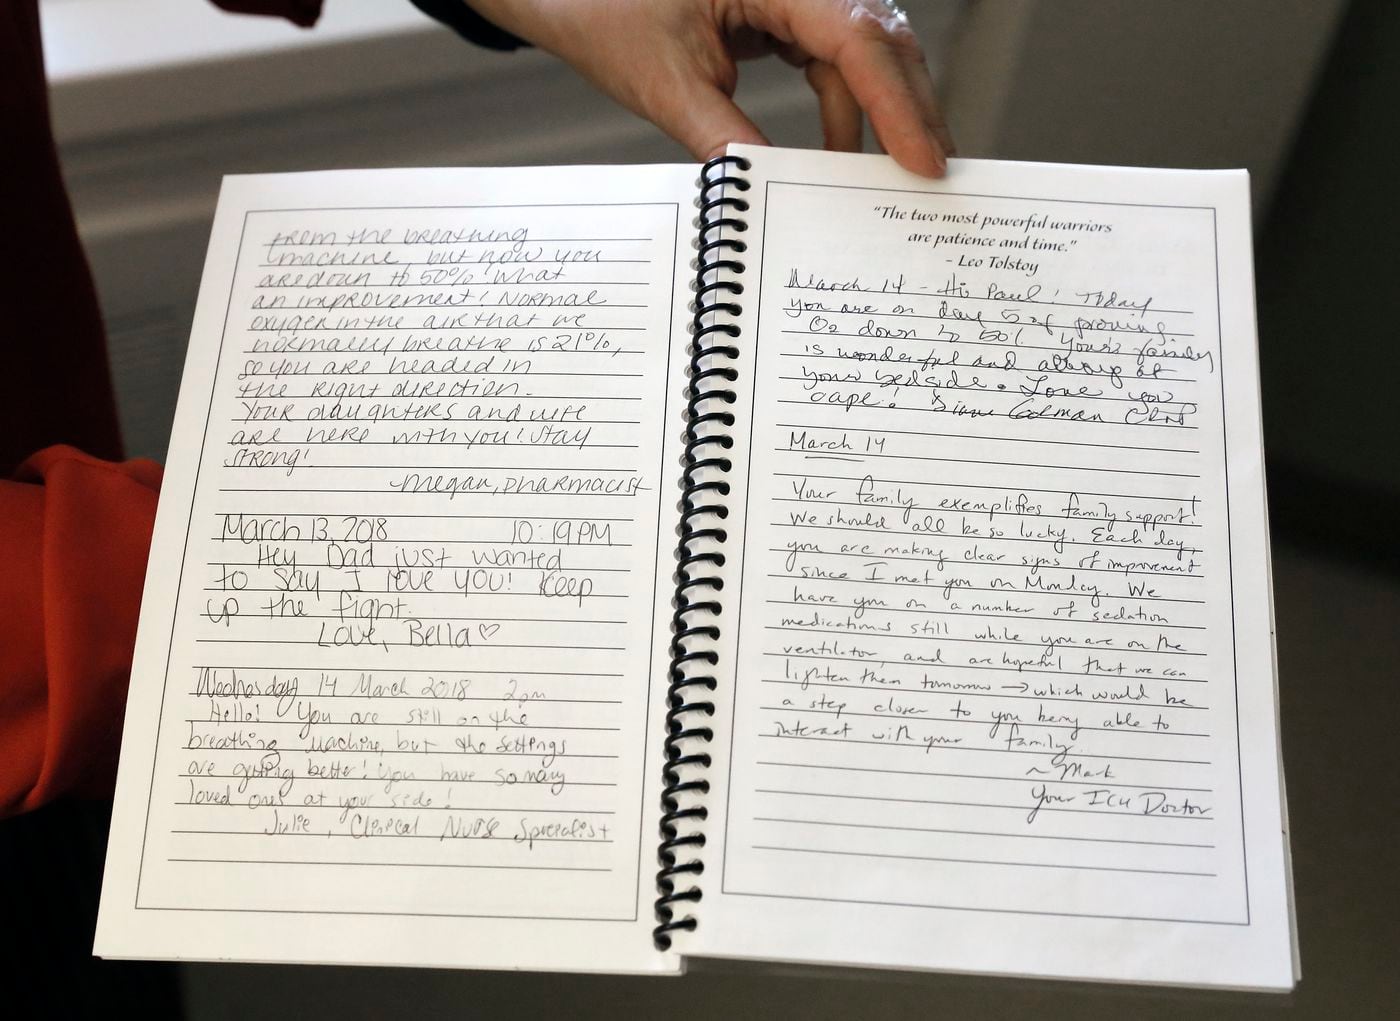 from the breathing
machine, but now you
are down to 50%! What
an improvement! Normal
oxygen in the air that we
normally breathe is 21%,
so you are headed in
the right direction.
Your daughters and wife
are here with you! Stay
strong!
-Megan, Pharmacist
March 13, 2018 10:19 PM
Hey Dad just wanted
to say I love you! Keep
up the fight.
Love, Bella ♡
Wednesday 14 March 2018 2pm
Hello! You are still on the
breathing machine, but the settings
are getting better! You have so many
loved ones at your side!
Julie, Clinical Nurse Specialist
"The two most powerful warriors
are patience and time."
- Leo Tolstoy
March 14 - Hi Paul! Today
you are on day 5 of proning.
O2 down to 50%. Your family
is wonderful and always at
your bedside. Love you
March 14
Your family exemplifies family support!
We should all be so lucky. Each day,
you are making clear signs of improvement
since I met you on Monday. We
have you on a number of sedation
medications still while you are on the
ventilator, and are hopeful that we can
lighten them tomorrow → which would be
a step closer to you being able to
interact with your family.
~Mark
Your ICU Doctor